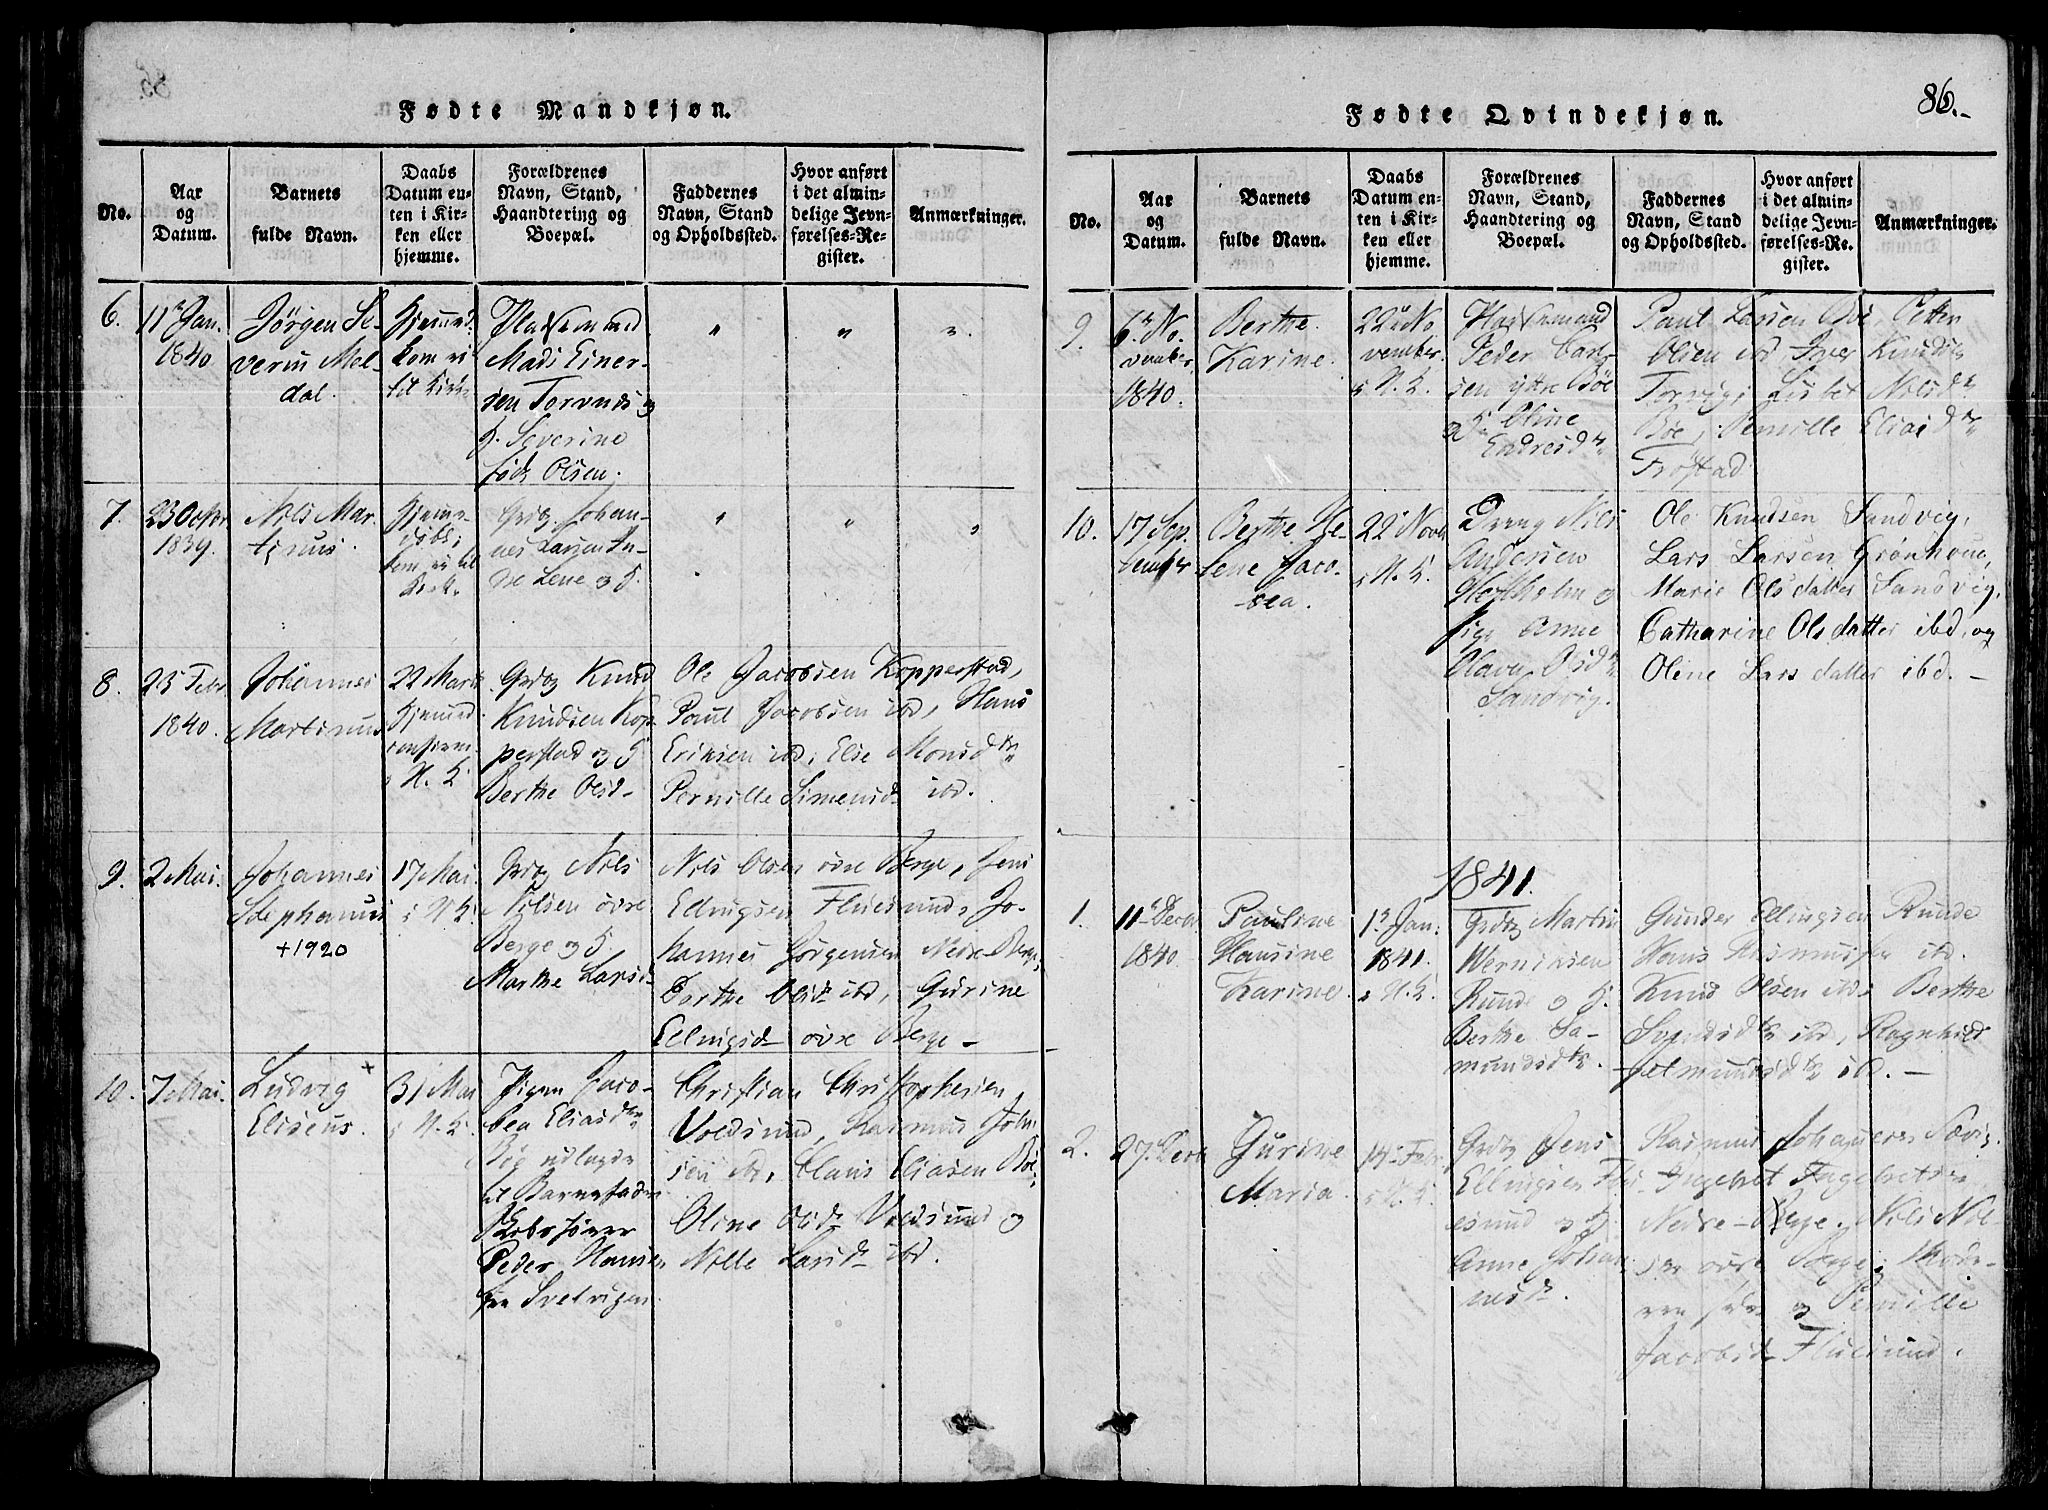 Fødte Mandkjøn.
No.
Aar
og
Datum.
Barnets
fulde Navn.
Daabs
Datum en-
ten i Kir-
ken eller
hjemme.
Forældrenes
Navn, Stand,
Haandtering og
Boepæl.
Faddernes
Navn, Stand
og Opholdssted.
Hvor anført
i det almin-
delige Jevn-
førelses-Re-
gister.
Anmærkninger.
6.
11 Jan.
1840.
Jørgen Se-
verin Mel-
dal.
Hjemmed.
kom
til Kirke
Pladsemand
Mads Einer-
sen Torvnes og
H. Severine
født Olsen.
"
"
"
7.
23 Octbr
1839.
Nils Mar-
tinus.
Hjemme-
døbt,
kom til
Kirk.
Grdbr. Johan-
nes Larsen In-
dre Lene og H.
"
"
"
8.
25 Febr
1840.
Johannes
Martinus
22 Marts
Hjemmed.
confirm.
i H. K.
Grdbr Knud
Knudsen Kop-
perstad og H.
Berthe Olsd.
Ole Jacobsen Kopperstad,
Paul Jacobsen ibd, Hans
Eriksen ibd, Else Monsdtr
Pernille Simensd. ibd.
9.
2 Mai.
Johannes
Stephanus
+1920
17 Mai.
i H. K.
Grdbr Nils
Nilsen øvre
Berge og H.
Marthe Larsd.
Nils Olsen øvre Berge, Jens
Ellingsen Fluesund, Jo-
hannes Jørgensen Nedre Berge,
Berthe Olsdr ibd, Gurine
Ellingsd. øvre Berge -
10.
7 Mai.
Ludvig +
Eliseus.
31 Mai
i H. K.
Pigen Jaco-
bea Eliasdtr
Bøe udlagde
til Barnefader
Peder Hansen
fra Svelvigen.
Christian Christophersen
Voldsund, Rasmus John-
sen ibd, Claus Eliasen Bøe,
Oline Olsdr Voldsund og
Nille Larsdr ibd.
Fødte Qvindekjøn.
86.-
No.
Aar
og
Datum.
Barnets
fulde Navn.
Daabs
Datum en-
ten i Kir-
ken eller
hjemme.
Forældrenes
Navn, Stand,
Haandtering og
Boepæl.
Faddernes
Navn, Stand
og Opholdssted.
Hvor anført
i det almin-
delige Jevn-
førelses-Re-
gister.
Anmærkninger.
9.
6 No-
vember
1840.
Berthe
Karine.
22 No-
vember.
i H. K.
Pladsemand
Peder Carl-
sen ytre Bøe
og H. Oline
Endresdtr
Paul Larsen Bøe, Petter
Olsen ibd, Iver Knudsen
Torvig, Lisbet Nilsdr
Bøe, Pernille Eliasdtr
Frøstad
10.
17 Sep-
tember
Berthe He-
lene Jaco-
bea.
22 Novbr
i H. K.
Dreng Nils
Andersen
Herøeholm og
Pige Anne
Olava Olsdtr
Sandvig.
Ole Knudsen Sandvig,
Lars Larsen Grønhoug,
Marie Olsdatter Sandvig,
Catharine Olsdatter ibd, og
Oline Larsdatter ibd. -
1841.
1.
11 Decbr
1840.
Pauline
Hansine
Karine.
1 Jan:
1841.
i H. K.
Grdbr Martin
Werniksen
Runde og H.
Berthe Sa-
mundsdtr.
Gunder Ellingsen Runde
Hans Rasmussen ibd.
Knud Olsen ibd, Berthe
ibd, Ragnhild
ibd. -
2.
27 Decbr
Gurine
Maria.
14 Febr.
i H. K.
Grdbr Jens
Ellingsen Flu-
esund og H.
Anne Johan-
nesdr.
Rasmus Johannes. Sævig.
Ingebret Ingebretsen
Nedre-Berge, Nils Nil-
sen øvre Berge, Mode-
ren selv og Pernille
Jacobsd. Fluesund.